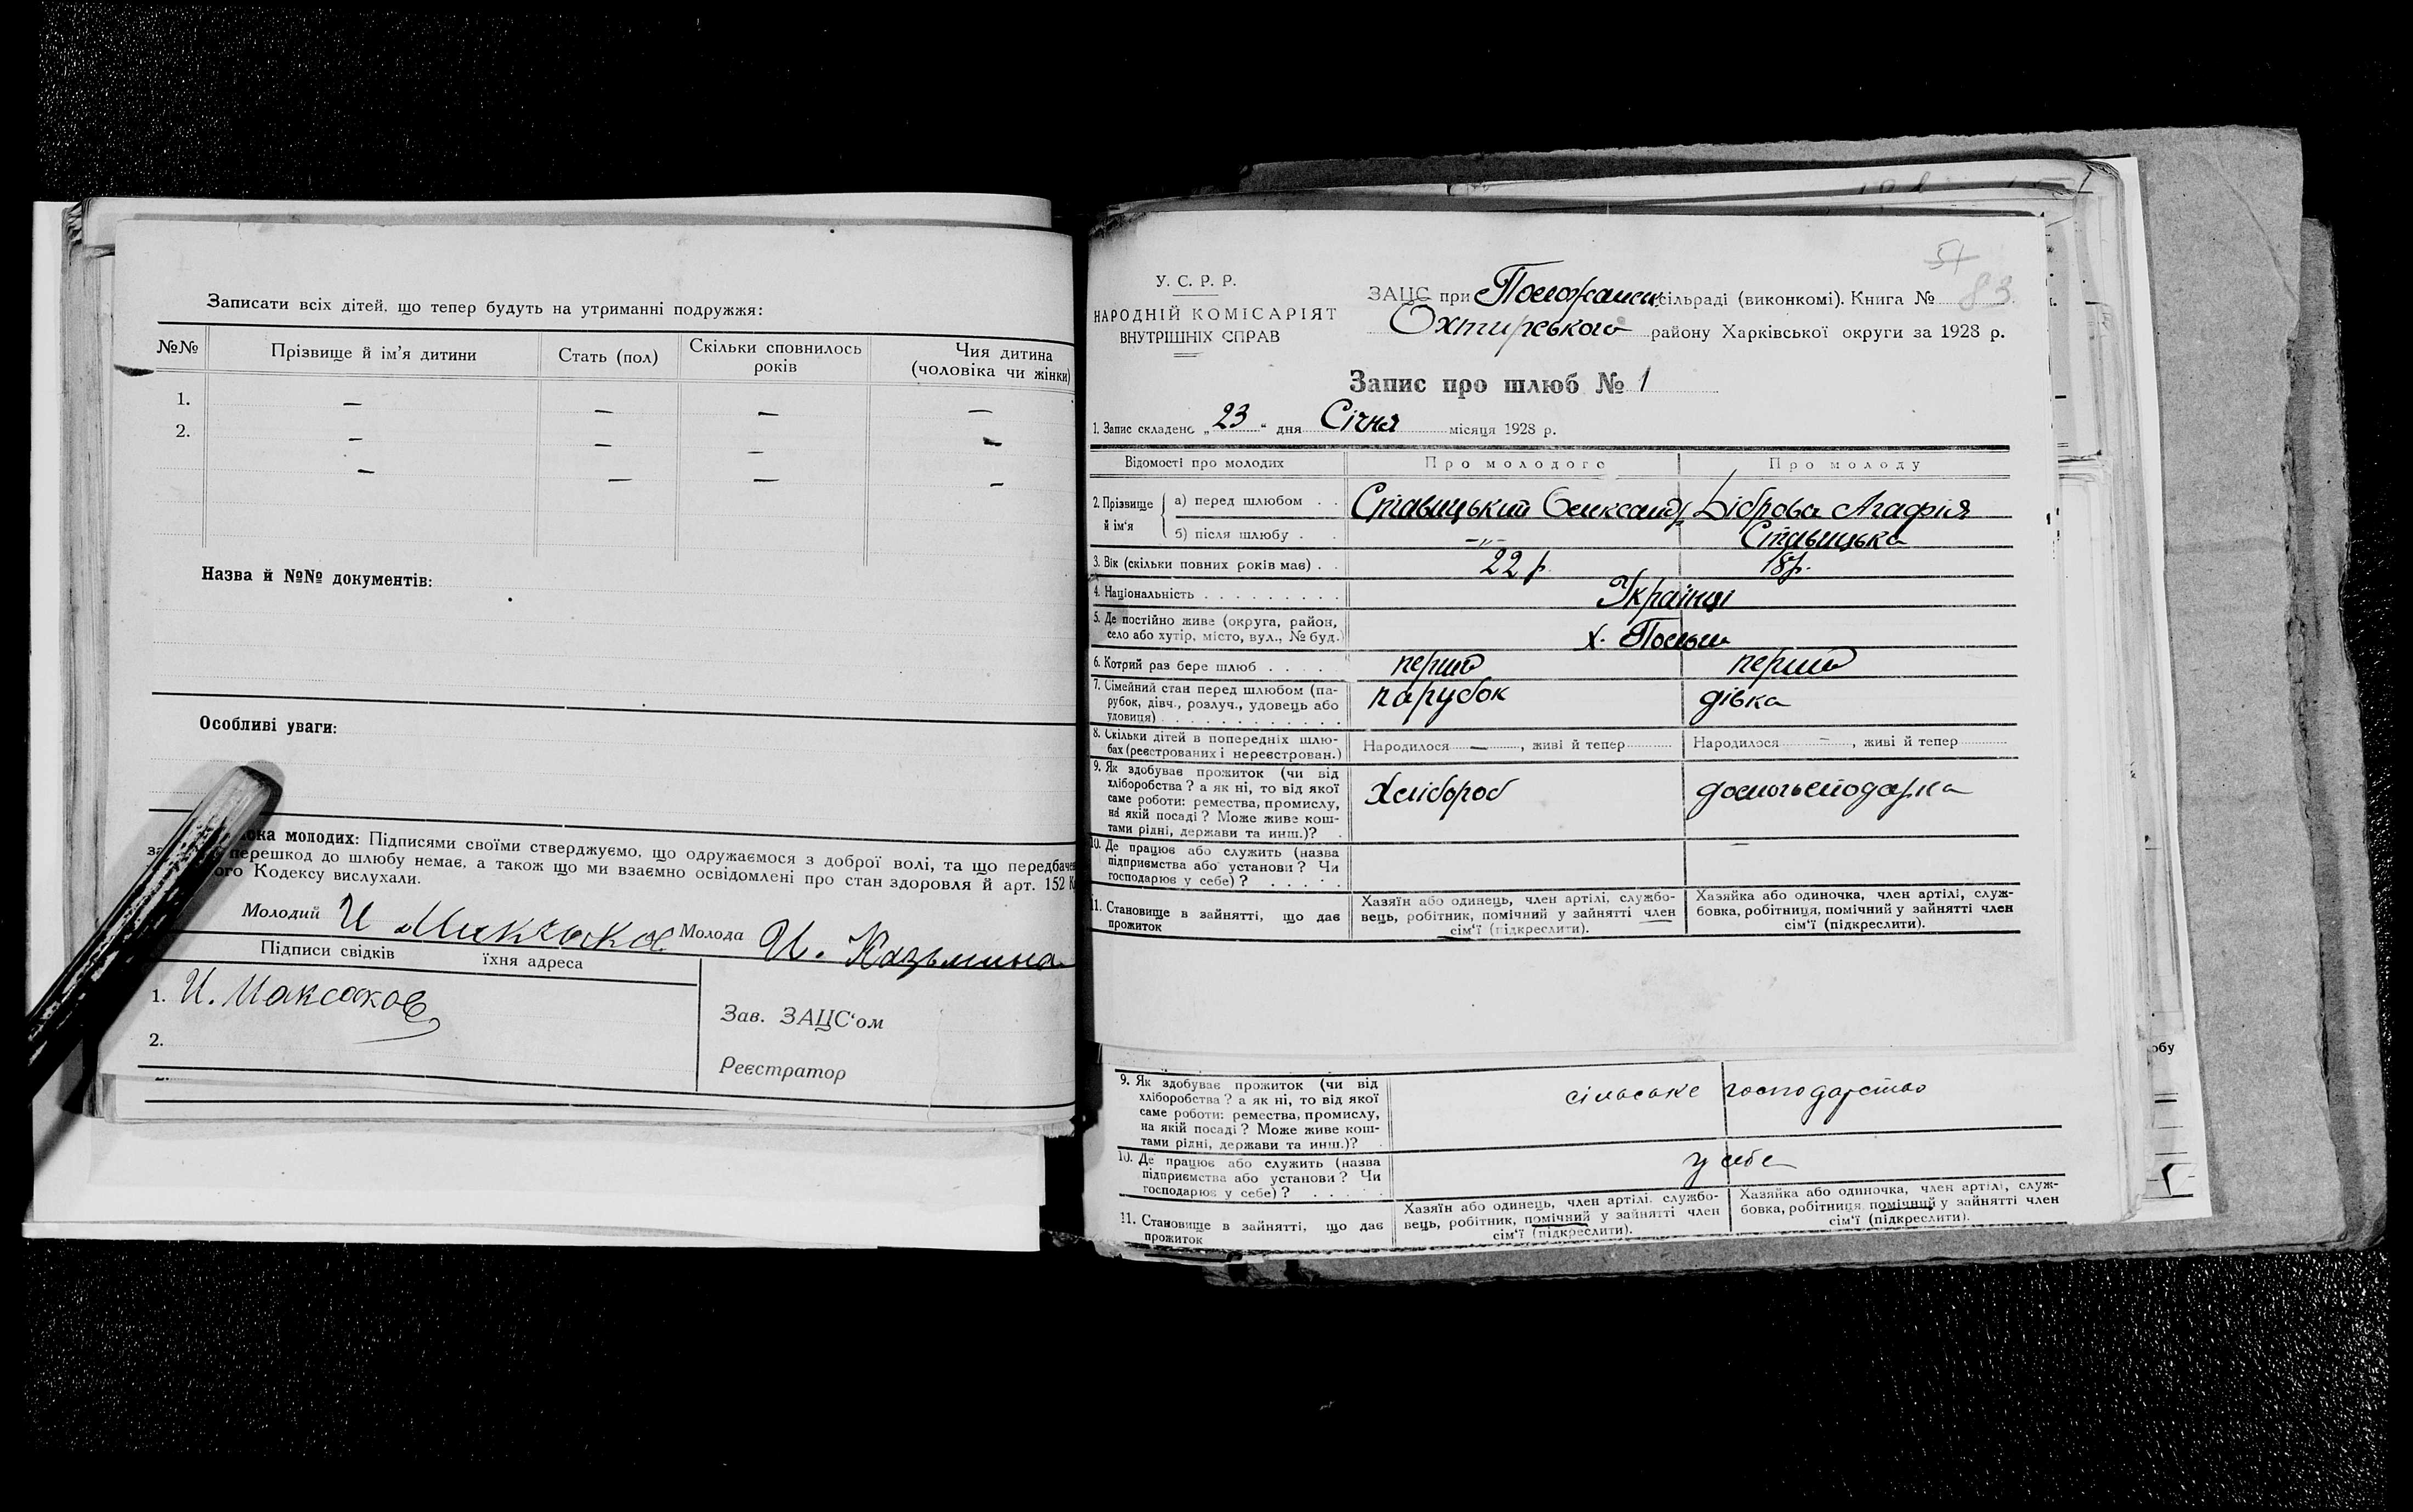 Записати всіх дітей, що тепер будуть на утриманні подружжя:
№№ Прізвище й ім'я дитини Стать (пол) Скільки сповнилось років Чия дитина (чоловіка чи жінки)
1. — — — —
2. — — — —
— — — —
Назва й №№ документів:
Особливі уваги:
молодих: Підписями своїми стверджуємо, що одружаємося з доброї волі, та що
перешкод до шлюбу немає, а також що ми взаємно освідомлені про стан здоровля й арт. 152
Кодексу вислухали.
Молодий И Молода И. Казьмина
Підписи свідків їхня адреса
1. И. Максаков
2.
Зав. ЗАЦС'ом
Реєстратор
51
83
У. С. Р. Р.
НАРОДНІЙ КОМІСАРІЯТ
ВНУТРІШНІХ СПРАВ
ЗАЦС при сільраді (виконкомі). Книга №
Охтирського району Харківської округи за 1928 р.
Запис про шлюб № 1
1. Запис складено „23“ дня Січня місяця 1928 р.
Відомості про молодих Про молодого Про молоду
2. Прізвище й ім'я
а) перед шлюбом . . Ставицький Олександр Діброва Агафія
б) після шлюбу . . —"— Ставицька
3. Вік (скільки повних років має) . . 22 р. 18 р.
4. Національність . . . . . . . . . Українці
5. Де постійно живе (округа, район,
село або хутір, місто, вул., № буд.) х.
6. Котрий раз бере шлюб . . . . перший перший
7. Сімейний стан перед шлюбом (па-
рубок, дівч., розлуч., удовець або
удовиця) . . . . . . . . . . . . парубок дівка
8. Скільки дітей в попередніх шлю-
бах (реєстрованих і нереєстрован.) Народилося — , живі й тепер Народилося — , живі й тепер
9. Як здобуває прожиток (чи від
хліборобства? а як ні, то від якої
саме роботи: ремества, промислу,
на якій посаді? Може живе кош-
тами рідні, держави та инш.)? . Хлібороб
10. Де працює або служить (назва
підприємства або установи? Чи
господарює у себе)? . . . . . —
11. Становище в зайнятті, що дає
прожиток
Хазяїн або одинець, член артілі, службо-
вець, робітник, помічний у зайнятті член
сім'ї (підкреслити).
Хазяйка або одиночка, член артілі, служ-
бовка, робітниця, помічний у зайнятті член
сім'ї (підкреслити).
9. Як здобуває прожиток (чи від
хліборобства? а як ні, то від якої
саме роботи: ремества, промислу,
на якій посаді? Може живе кош-
тами рідні, держави та инш.)? сільське господарство
10. Де працює або служить (назва
підприємства або установи? Чи
господарює у себе)? . . . . . у себе
11. Становище в зайнятті, що дає
прожиток
Хазяїн або одинець, член артілі, службо-
вець, робітник, помічний у зайнятті член
сім'ї (підкреслити).
Хазяйка або одиночка, член артілі, служ-
бовка, робітниця, помічний у зайнятті член
сім'ї (підкреслити).